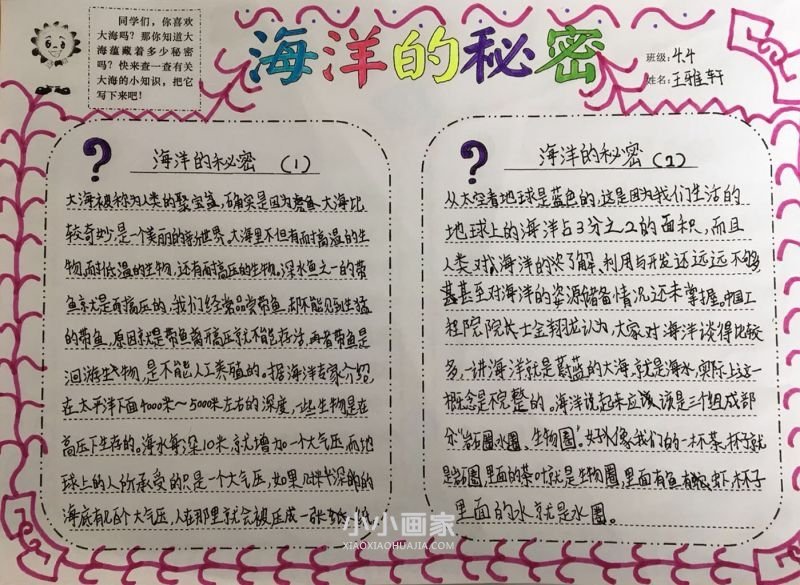 同学们，你喜欢
大海吗？那你知道大
海蕴藏着多少秘密
吗？快来查一查有关
大海的小知识，把它
写下来吧！
海洋的秘密
班级：4.4
姓名：王雅轩
?
海洋的秘密 （1）
大海被称为人类的聚宝盆，确实是因为大海比
较奇妙，是一个美丽的新世界。大海里不但有耐高温的生
物，耐低温的生物，还有耐高压的生物。深水鱼之一的带
鱼就是耐高压的，我们经常品尝带鱼，却不能见到生猛
的带鱼，原因就是带鱼离开高压就不能存活，再者带鱼是
洄游生物，是不能人工养殖的。据海洋专家介绍，
在太平洋下面4000米～5000米左右的深度，一些生物是在
高压下生存的。海水每深10米，就增加一个大气压，而地
球上的人所承受的只是一个大气压，如果几千米深的
海底有几百个大气压，人在那里就会被压成一张
?
海洋的秘密（2）
从太空看地球是蓝色的，这是因为我们生活的
地球上的海洋占3分之2的面积，而且
人类对海洋的了解、利用与开发还远远不够，
甚至对海洋的资源储备情况还未掌握。中国工
程院院士金翔龙认为，大家对海洋谈得比较
多，一讲海洋就是蔚蓝的大海，就是海水，实际上这一
概念是不完整的。海洋说起来应该是三个组成部
分“岩圈、水圈、生物圈”。好像我们的一杯茶，杯子就
是岩圈，里面的茶叶就是生物圈，里面有鱼有虾，杯子
里面的水就是水圈。
小小画家
XIAOXIAOHUAJIA.COM